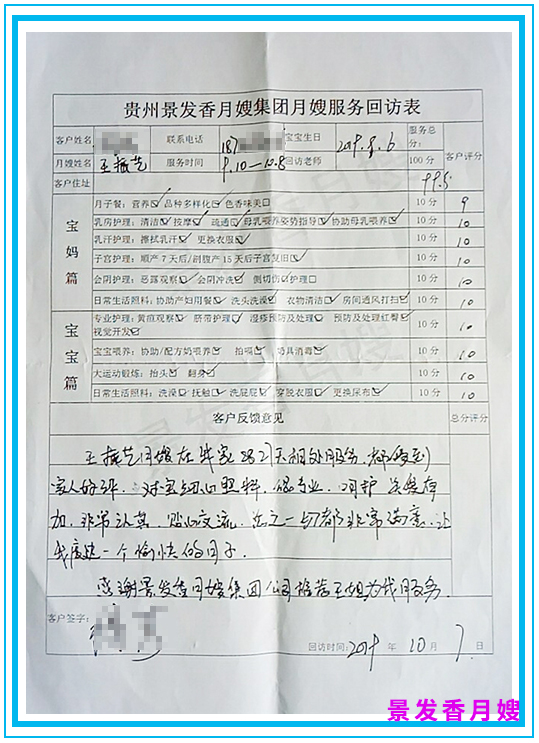 贵州景发香月嫂集团月嫂服务回访表
客户姓名 联系电话 187 宝宝生日 2019.8.6 服务总分: 客户评分
月嫂姓名 王振艺 服务时间 9.10—10.8 回访老师 100分
客户住址 99.5
宝妈篇
月子餐: 营养☑ 品种多样化☑ 色香味美□ 10分 9
乳房护理: 清洁☑ 按摩☑ 疏通☑ 母乳喂养姿势指导☑ 协助母乳喂养☑ 10分 10
乳汗护理: 擦拭乳汗☑ 更换衣服☑ 10分 10
子宫护理: 顺产7天后/剖腹产15天后子宫复旧☑ 10分 10
会阴护理: 恶露观察☑ 会阴冲洗☑ 侧切伤口护理□ 10分 10
日常生活照料: 协助产妇用餐☑ 洗头洗澡☑ 衣物清洁☑ 房间通风打扫☑ 10分 10
宝宝篇
专业护理: 黄疸观察☑ 脐带护理☑ 湿疹预防及处理☑ 预防及处理红臀☑
视觉开发☑ 10分 10
宝宝喂养: 协助/配方奶喂养☑ 拍嗝☑ 奶具消毒☑ 10分 10
大运动锻炼: 抬头☑ 翻身☑ 10分 10
日常生活照料: 洗澡☑ 抚触☑ 洗屁屁☑ 穿脱衣服☑ 更换尿布☑ 10分 10
客户反馈意见 总分评分
王振艺月嫂在我家28天相处服务,都受到
家人好评,对宝宝细心照料,很专业,
加,非常认真,贴心交流,总之一切都非常满意,让
我度过一个愉快的月子.
感谢景发香月嫂集团公司推荐王姐为我服务.
客户签字:
回访时间: 2019 年 10 月 7 日
景发香月嫂